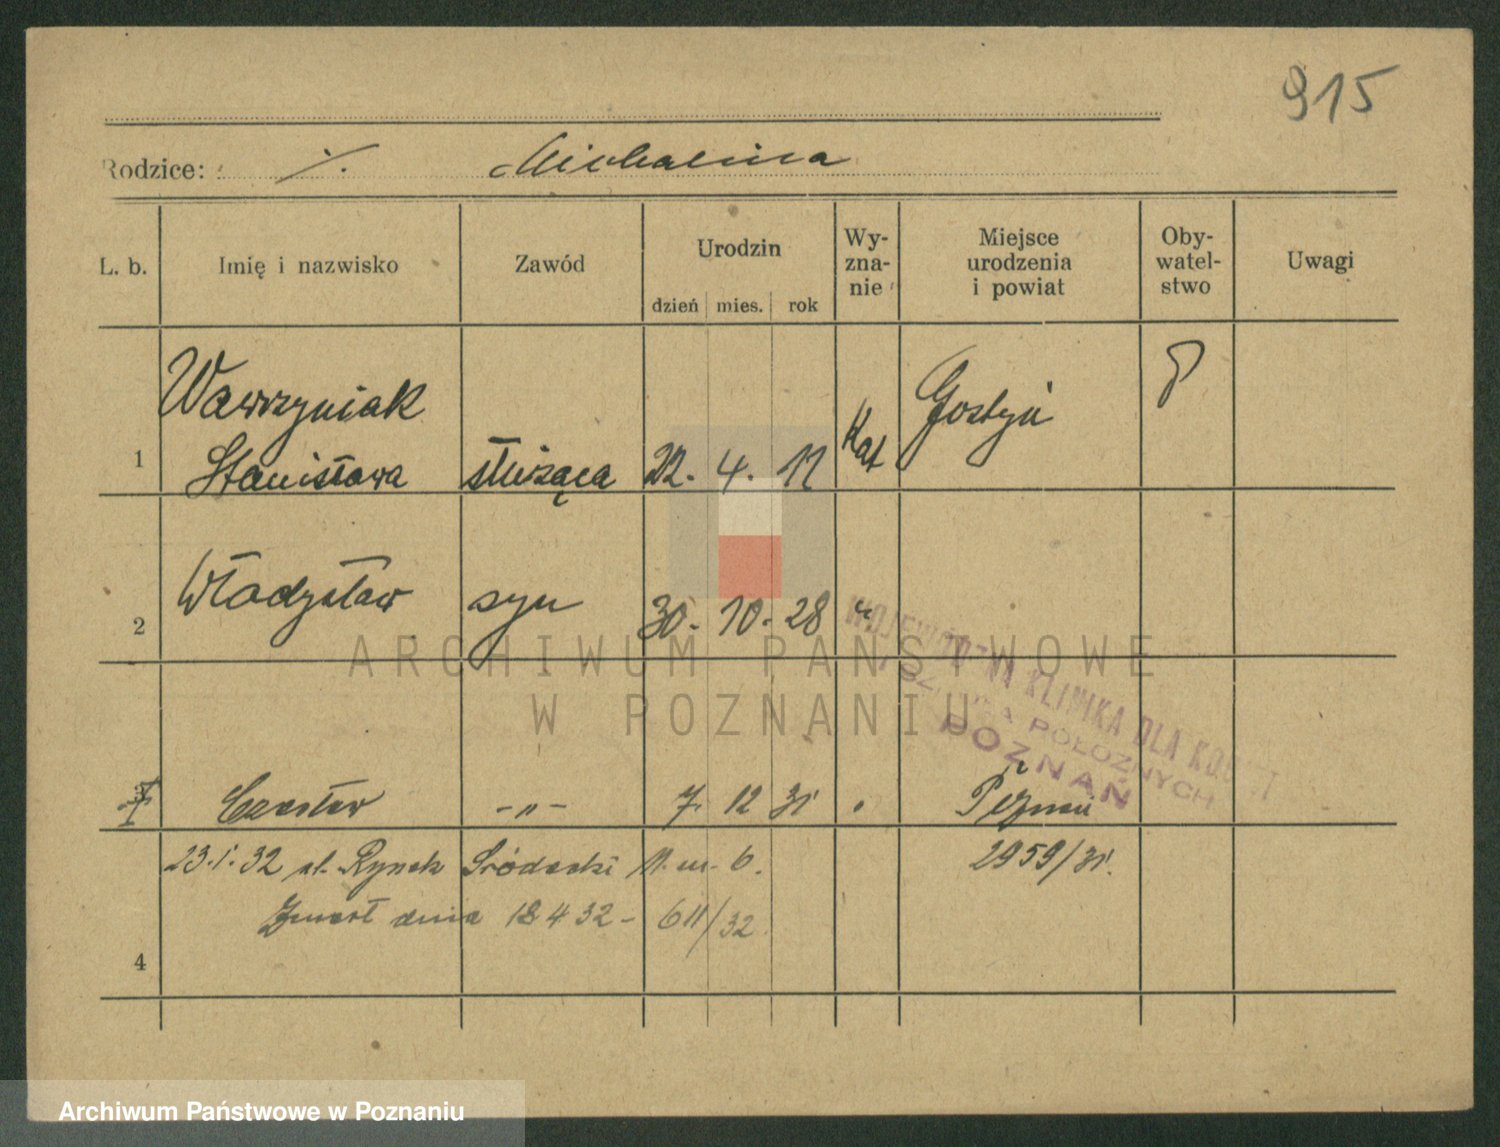 915
Rodzice: ·/. Michalina
L. b. Imię i nazwisko Zawód Urodzin dzień mies. rok Wy-zna-nie Miejsce urodzenia i powiat Oby-watel-stwo Uwagi
Wawrzyniak Gostyń P
1 Stanisława służąca 22. 4. 11 Kat
2 Władysław syn 30. 10. 28 "
ARCHIWUM PAŃSTWOWE
W POZNANIU
WOJEWÓDZKA KLINIKA DLA KOBIET
POŁOŻNYCH
POZNAŃ
Czesław -"- 7. 12 31 Poznań
23.1.32 ul. Rynek Śródecki 11. m. 6. 2959/31.
Zmarł dnia 18 4 32 - 611/32
4
Archiwum Państwowe w Poznaniu